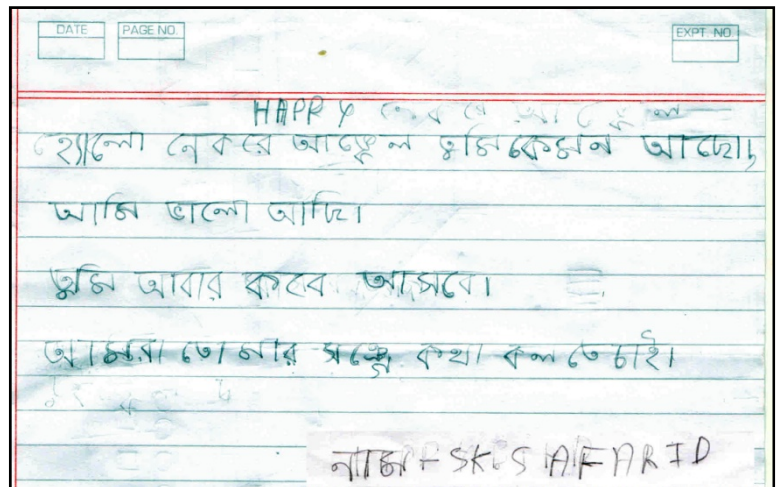 DATE PAGE NO. EXPT. NO.
HAPPY
হ্যালো নেকরে আঙ্কেল তুমি কেমন আছো।
আমি ভালো আছি।
তুমি আবার কবে আসবে।
আমরা তোমার সঙ্গে কথা কলতে চাই।
নাম - SK. SAFARID